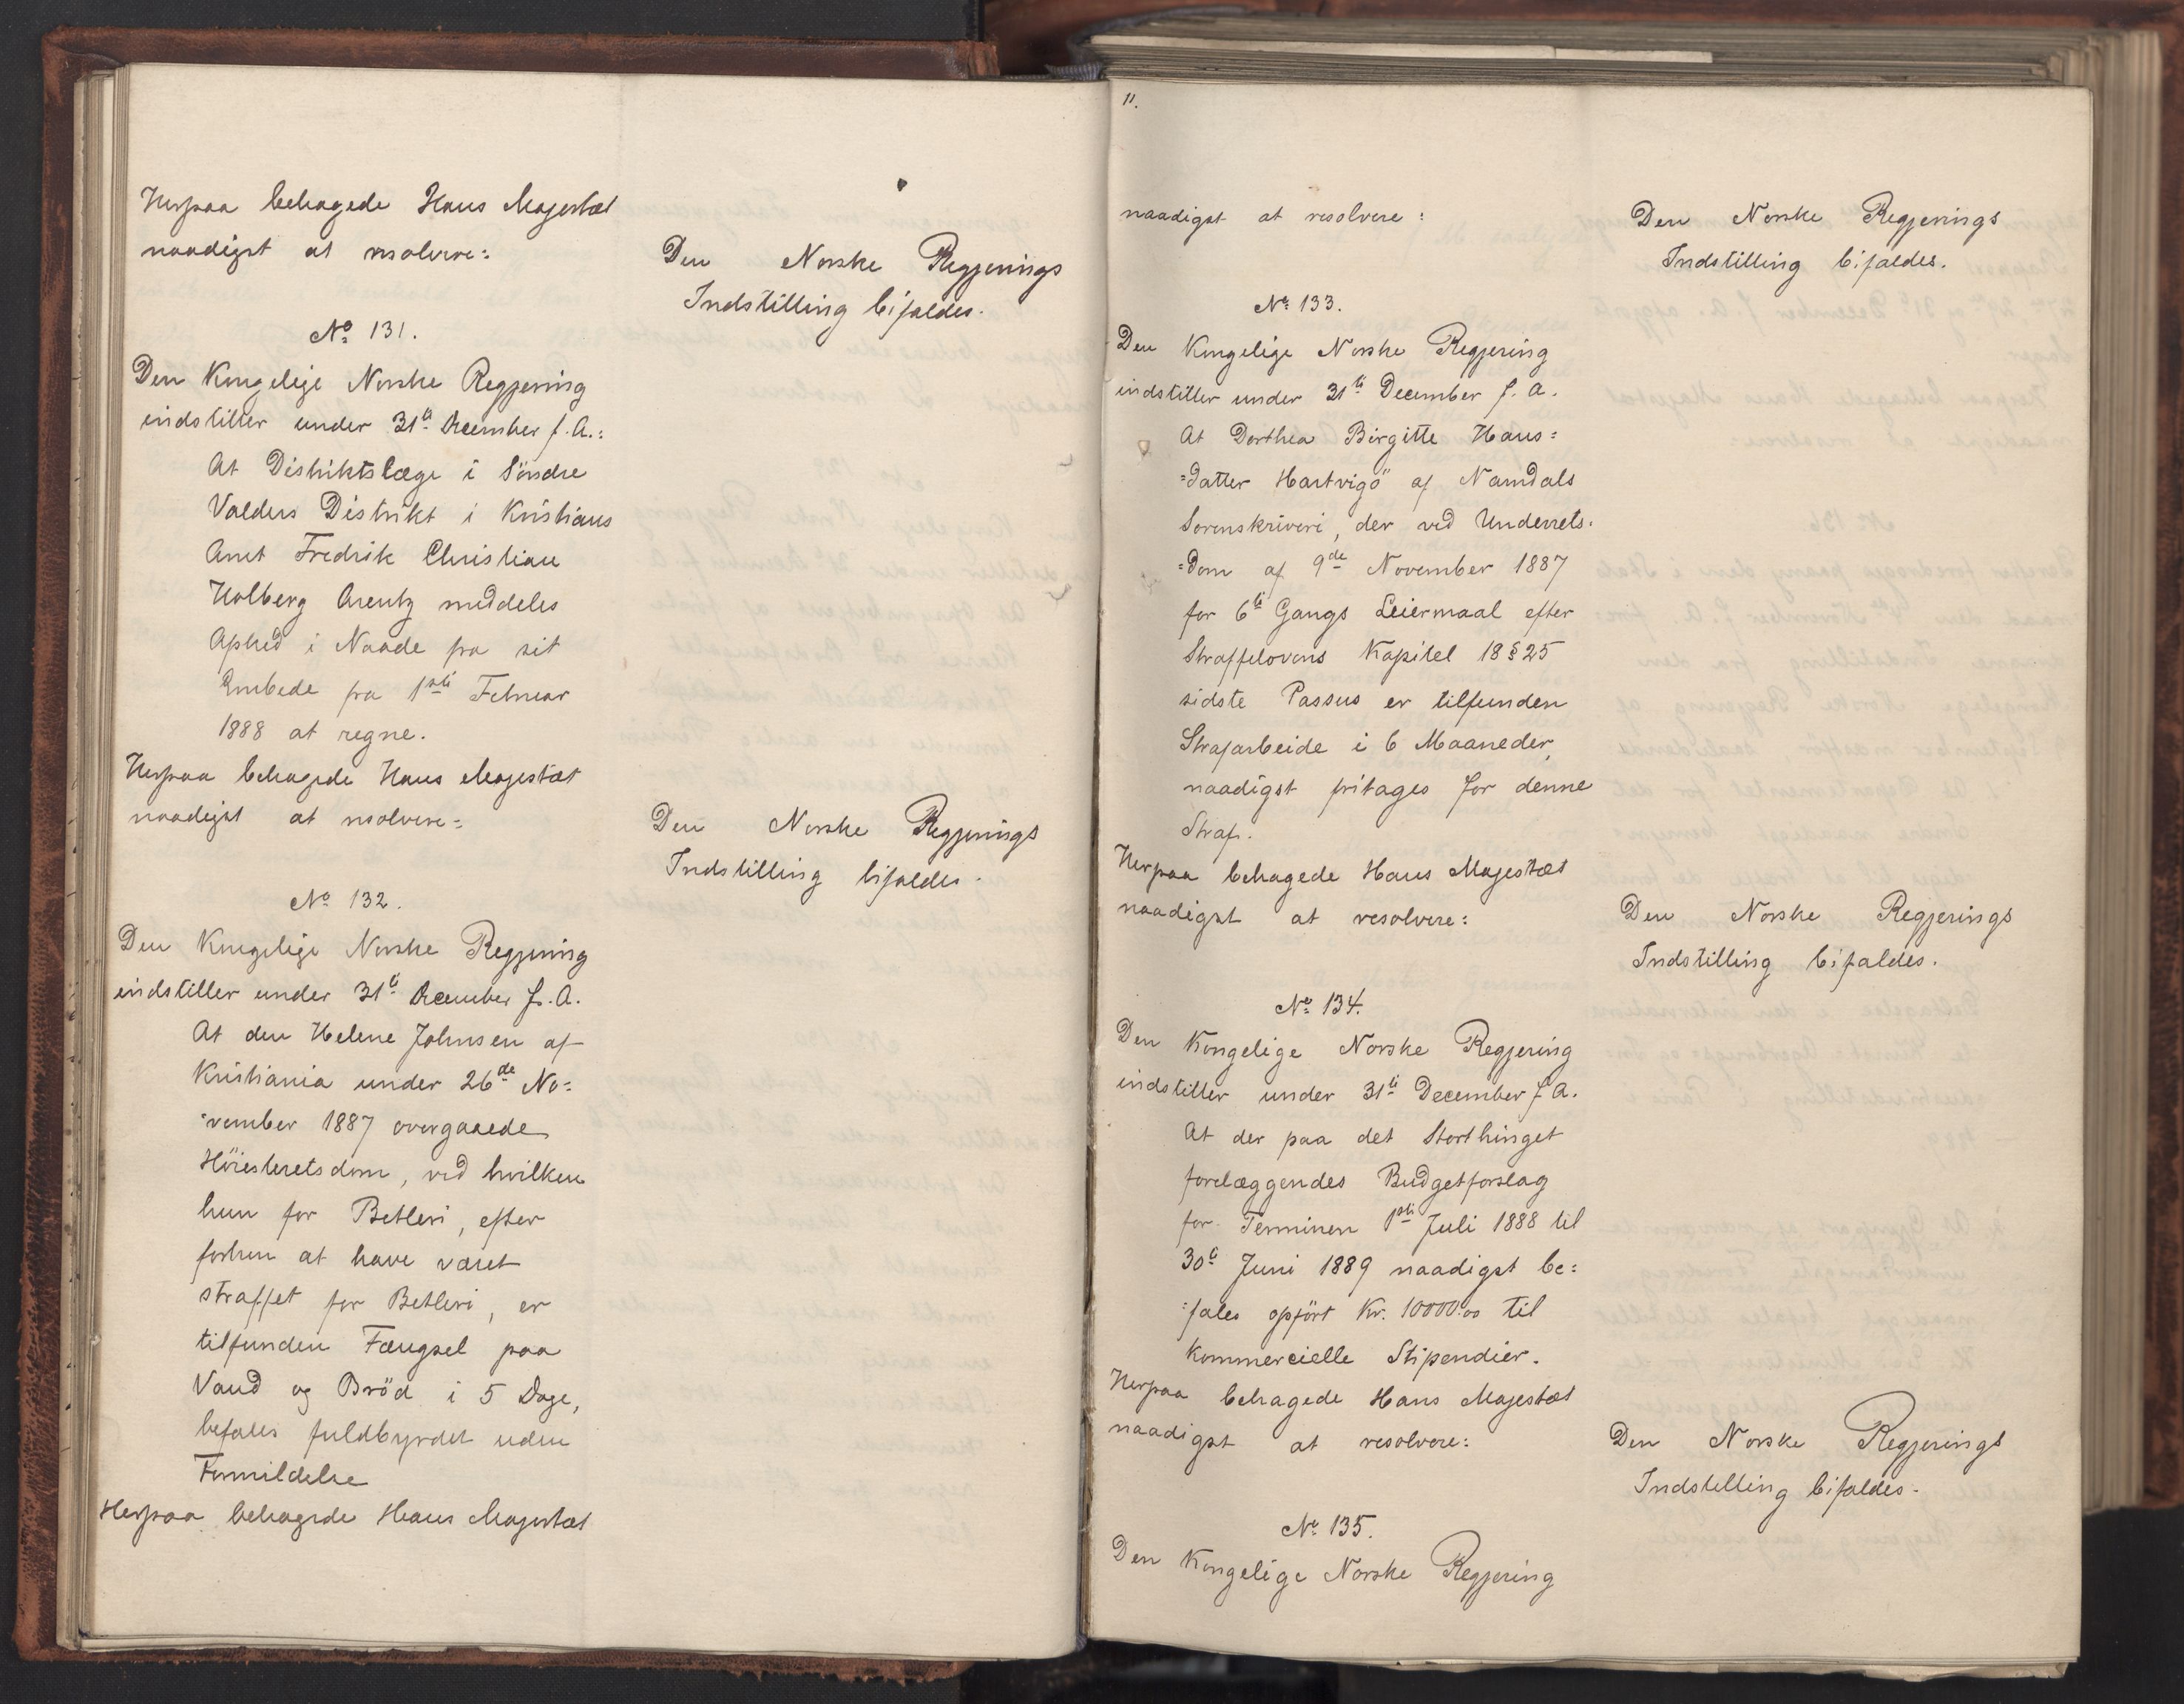 Herpaa behagede Hans Majestæt
naadigst at resolvere:
Den Norske Regjerings
Indstilling bifaldes.
No 131.
Den Kongelige Norske Regjering
indstiller under 31te December f. A.:
At Distriktslæge i Söndre
Valders Distrikt i Kristians
Amt Fredrik Christian
Holberg Arentz meddeles
Afsked i Naade fra sit
Embede fra 1ste Februar
1888 at regne.
Herpaa behagede Hans Majestæt
naadigst at resolvere:
Den Norske Regjerings
Indstilling bifaldes.
No 132.
Den Kongelige Norske Regjering
indstiller under 31te December f. A.
At den Helene Johnsen af
Kristiania under 26de No=
=vember 1887 overgaaede
Höiesteretsdom, ved hvilken
hun for Betleri, efter
forhen at have været
straffet for Betleri, er
tilfunden Fængsel paa
Vand og Bröd i 5 Dage,
befales fuldbyrdet uden
Formildelse
Herpaa behagede Hans Majestæt
11.
naadigst at resolvere:
Den Norske Regjerings
Indstilling bifaldes.
No 133.
Den Kongelige Norske Regjering
indstiller under 31te December f. A.
At Dorthea Birgitte Hans=
=datter Hartvigö af Namdals
Sorenskriveri, der ved Underrets=
=dom af 9de November 1887
for 6te Gangs Leiermaal efter
Straffelovens Kapitel 18 § 25
sidste Passus er tilfunden
Strafarbeide i 6 Maaneder,
naadigst fritages for denne
Straf.
Herpaa behagede Hans Majestæt
naadigst at resolvere:
Den Norske Regjerings
Indstilling bifaldes.
No 134.
Den Kongelige Norske Regjering
indstiller under 31te December f. A.
At der paa det Storthinget
forelæggendes Budgetforslag
for Terminen 1ste Juli 1888 til
30te Juni 1889 naadigst be=
=fales opfört Kr. 10000.00 til
kommercielle Stipendier.
Herpaa behagede Hans Majestæt
naadigst at resolvere:
Den Norske Regjerings
Indstilling bifaldes.
No 135.
Den Kongelige Norske Regjering